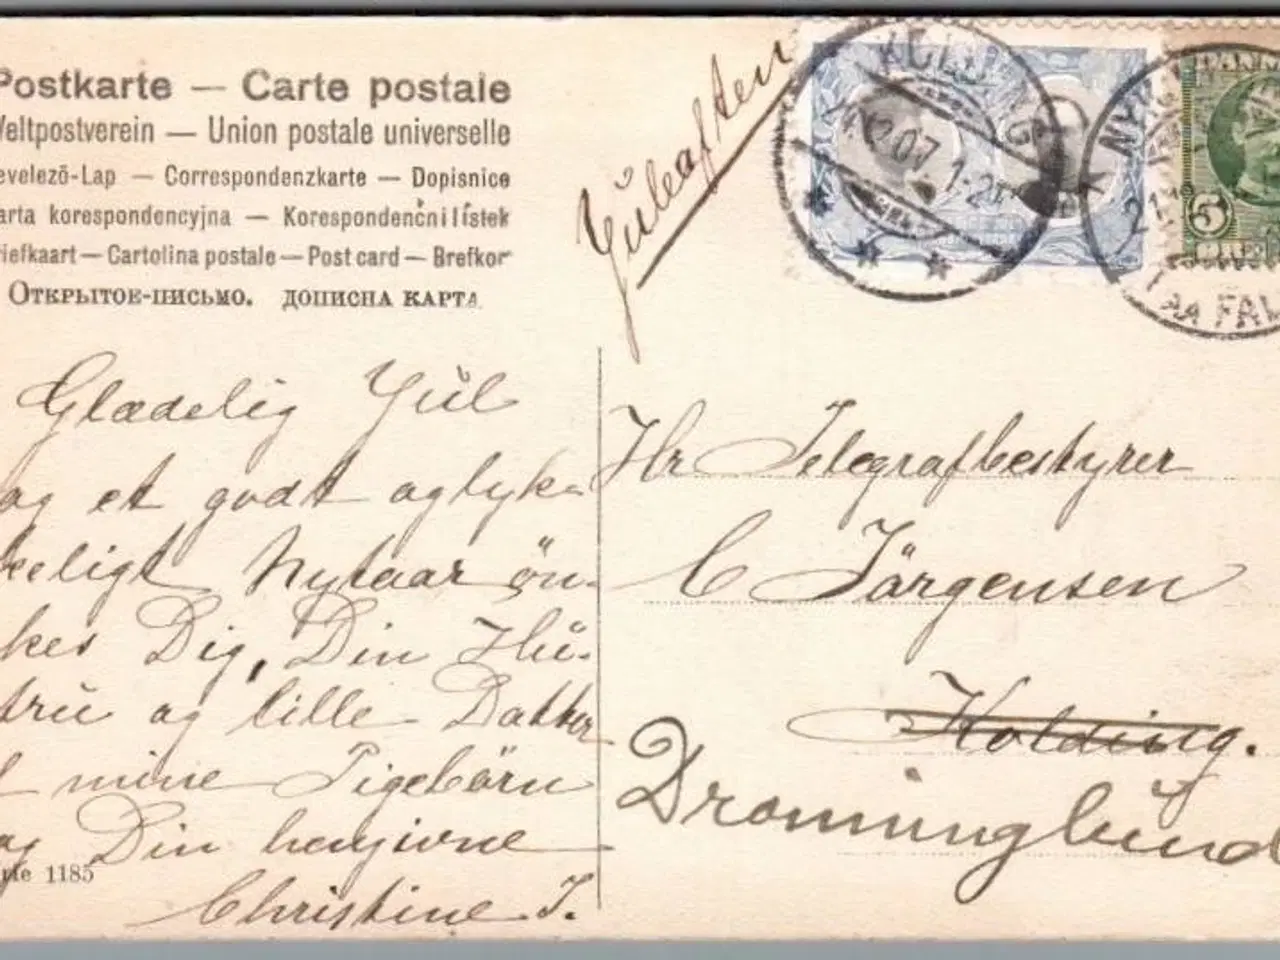 Postkarte — Carte postale
Weltpostverein — Union postale universelle
evelező-Lap — Correspondenzkarte — Dopisnice
arta korespondencyjna — Korespondenčni lístek
riefkaart — Cartolina postale — Post card — Brefkor
Открытое-письмо. дописна карта
Juleaften
KOLDING
24.12.07. 1-2
5
ØRE
Glædelig Jul
og et godt og lyk-
keligt Nytaar øn-
skes Dig, Din Hu-
stru og lille Datter
af mine Pigebørn
og Din hengivne
Christine J.
rte 1185
Hr Telegrafbestyrer
C Jørgensen
Kolding.
Dronninglund